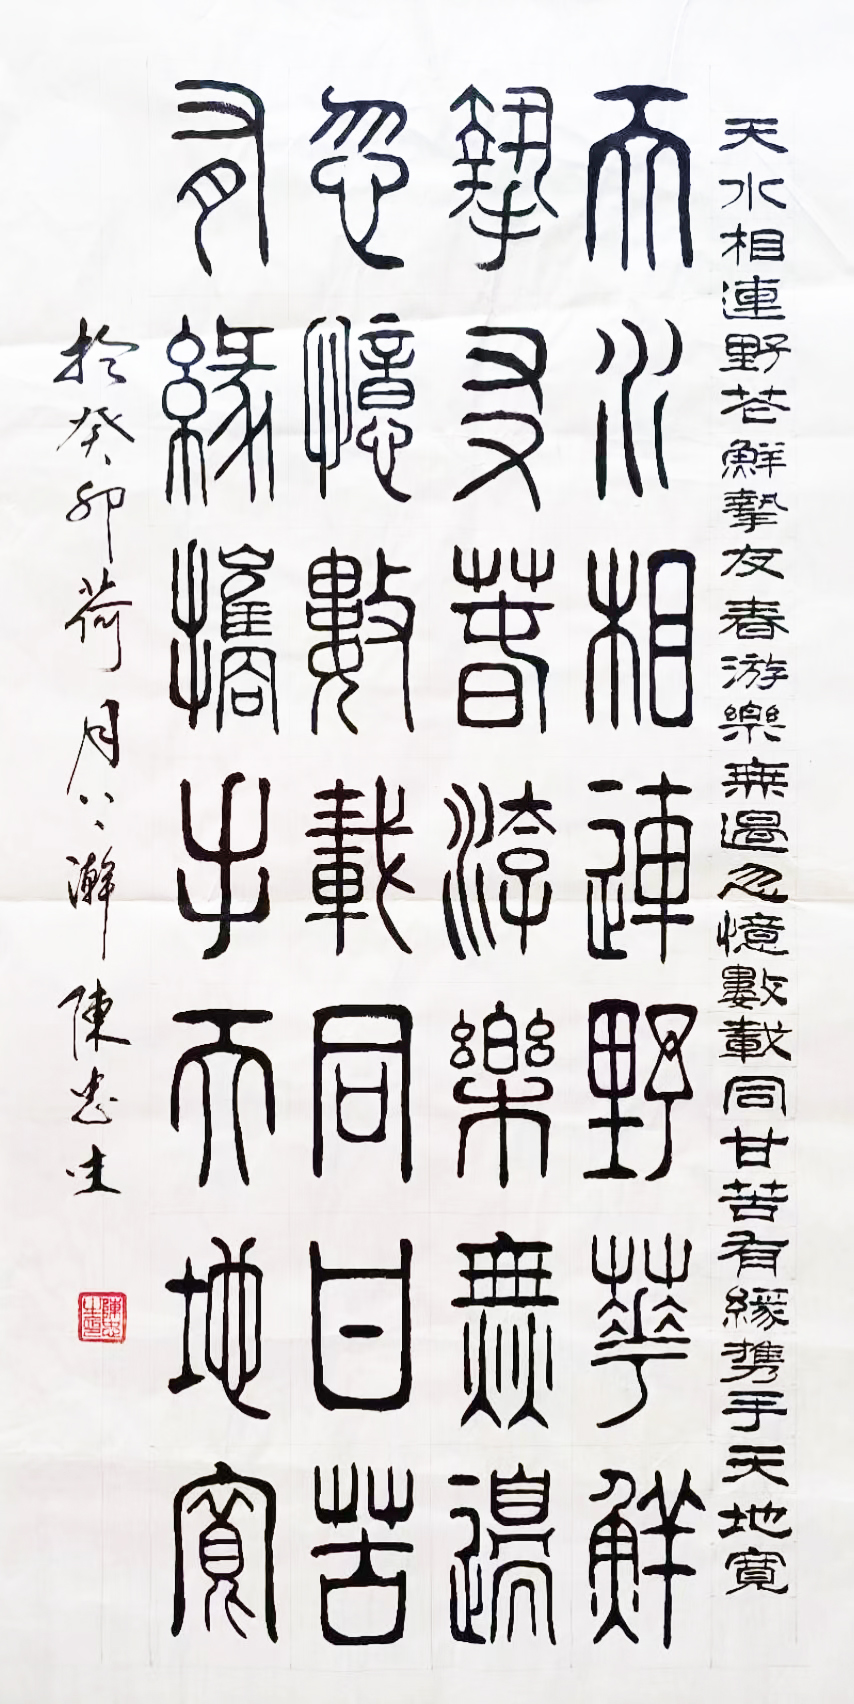 天水相連野花鮮摯友春游樂無邊忽憶數載同甘苦有緣携手天地寬
天水相連野華鮮
摯友春游樂無邊
忽憶數載同甘苦
有緣攜手天地寬
於癸卯荷月瀚陳忠生
陳忠生印